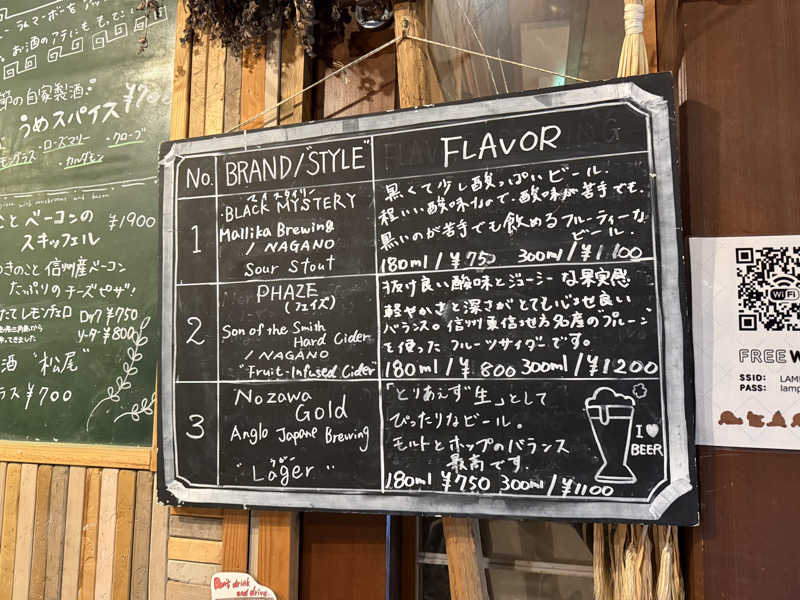 お酒のアテにもってこ
節の自家製酒。
うめスパイス ¥700
・ローズマリー ・クローブ
モングラス ・カルダモン
¥1900
ベーコンの
スキッフェル
きのこと 信州産ベーコン
たっぷりの チーズピザ!
レモンチェロ
¥750
ソーダ ¥800
酒 "松尾"
ラス ¥700
No. BRAND/"STYLE" FLAVOR
1
BLACK MYSTERY
Mallika Brewing
/ NAGANO
Sour Stout
黒くて少し酸っぱいビール.
程いい酸味なので、酸味が苦手でも.
黒いのが苦手でも飲めるフルーティーな
ビール.
180ml/¥750 300ml/¥1100
2
PHAZE
(フェイズ)
Son of the Smith
Hard Cider
/ NAGANO
"Fruit-Infused Cider"
抜け良い酸味とジューシーな果実感
軽やかさと深さがとてもいい
バランス。信州東信地方名産の"プルーン"
を使ったフルーツサイダーです。
180ml/¥800 300ml/¥1200
3
Nozawa
Gold
Anglo Japane Brewing
"Lager"
「とりあえず生」として
ぴったりなビール。
モルトとホップのバランス
最高です.
180ml/¥750 300ml/¥1100
I
BEER
WiFi
FREE W
SSID: LAM
PASS: lamp
Don't drink
and drive